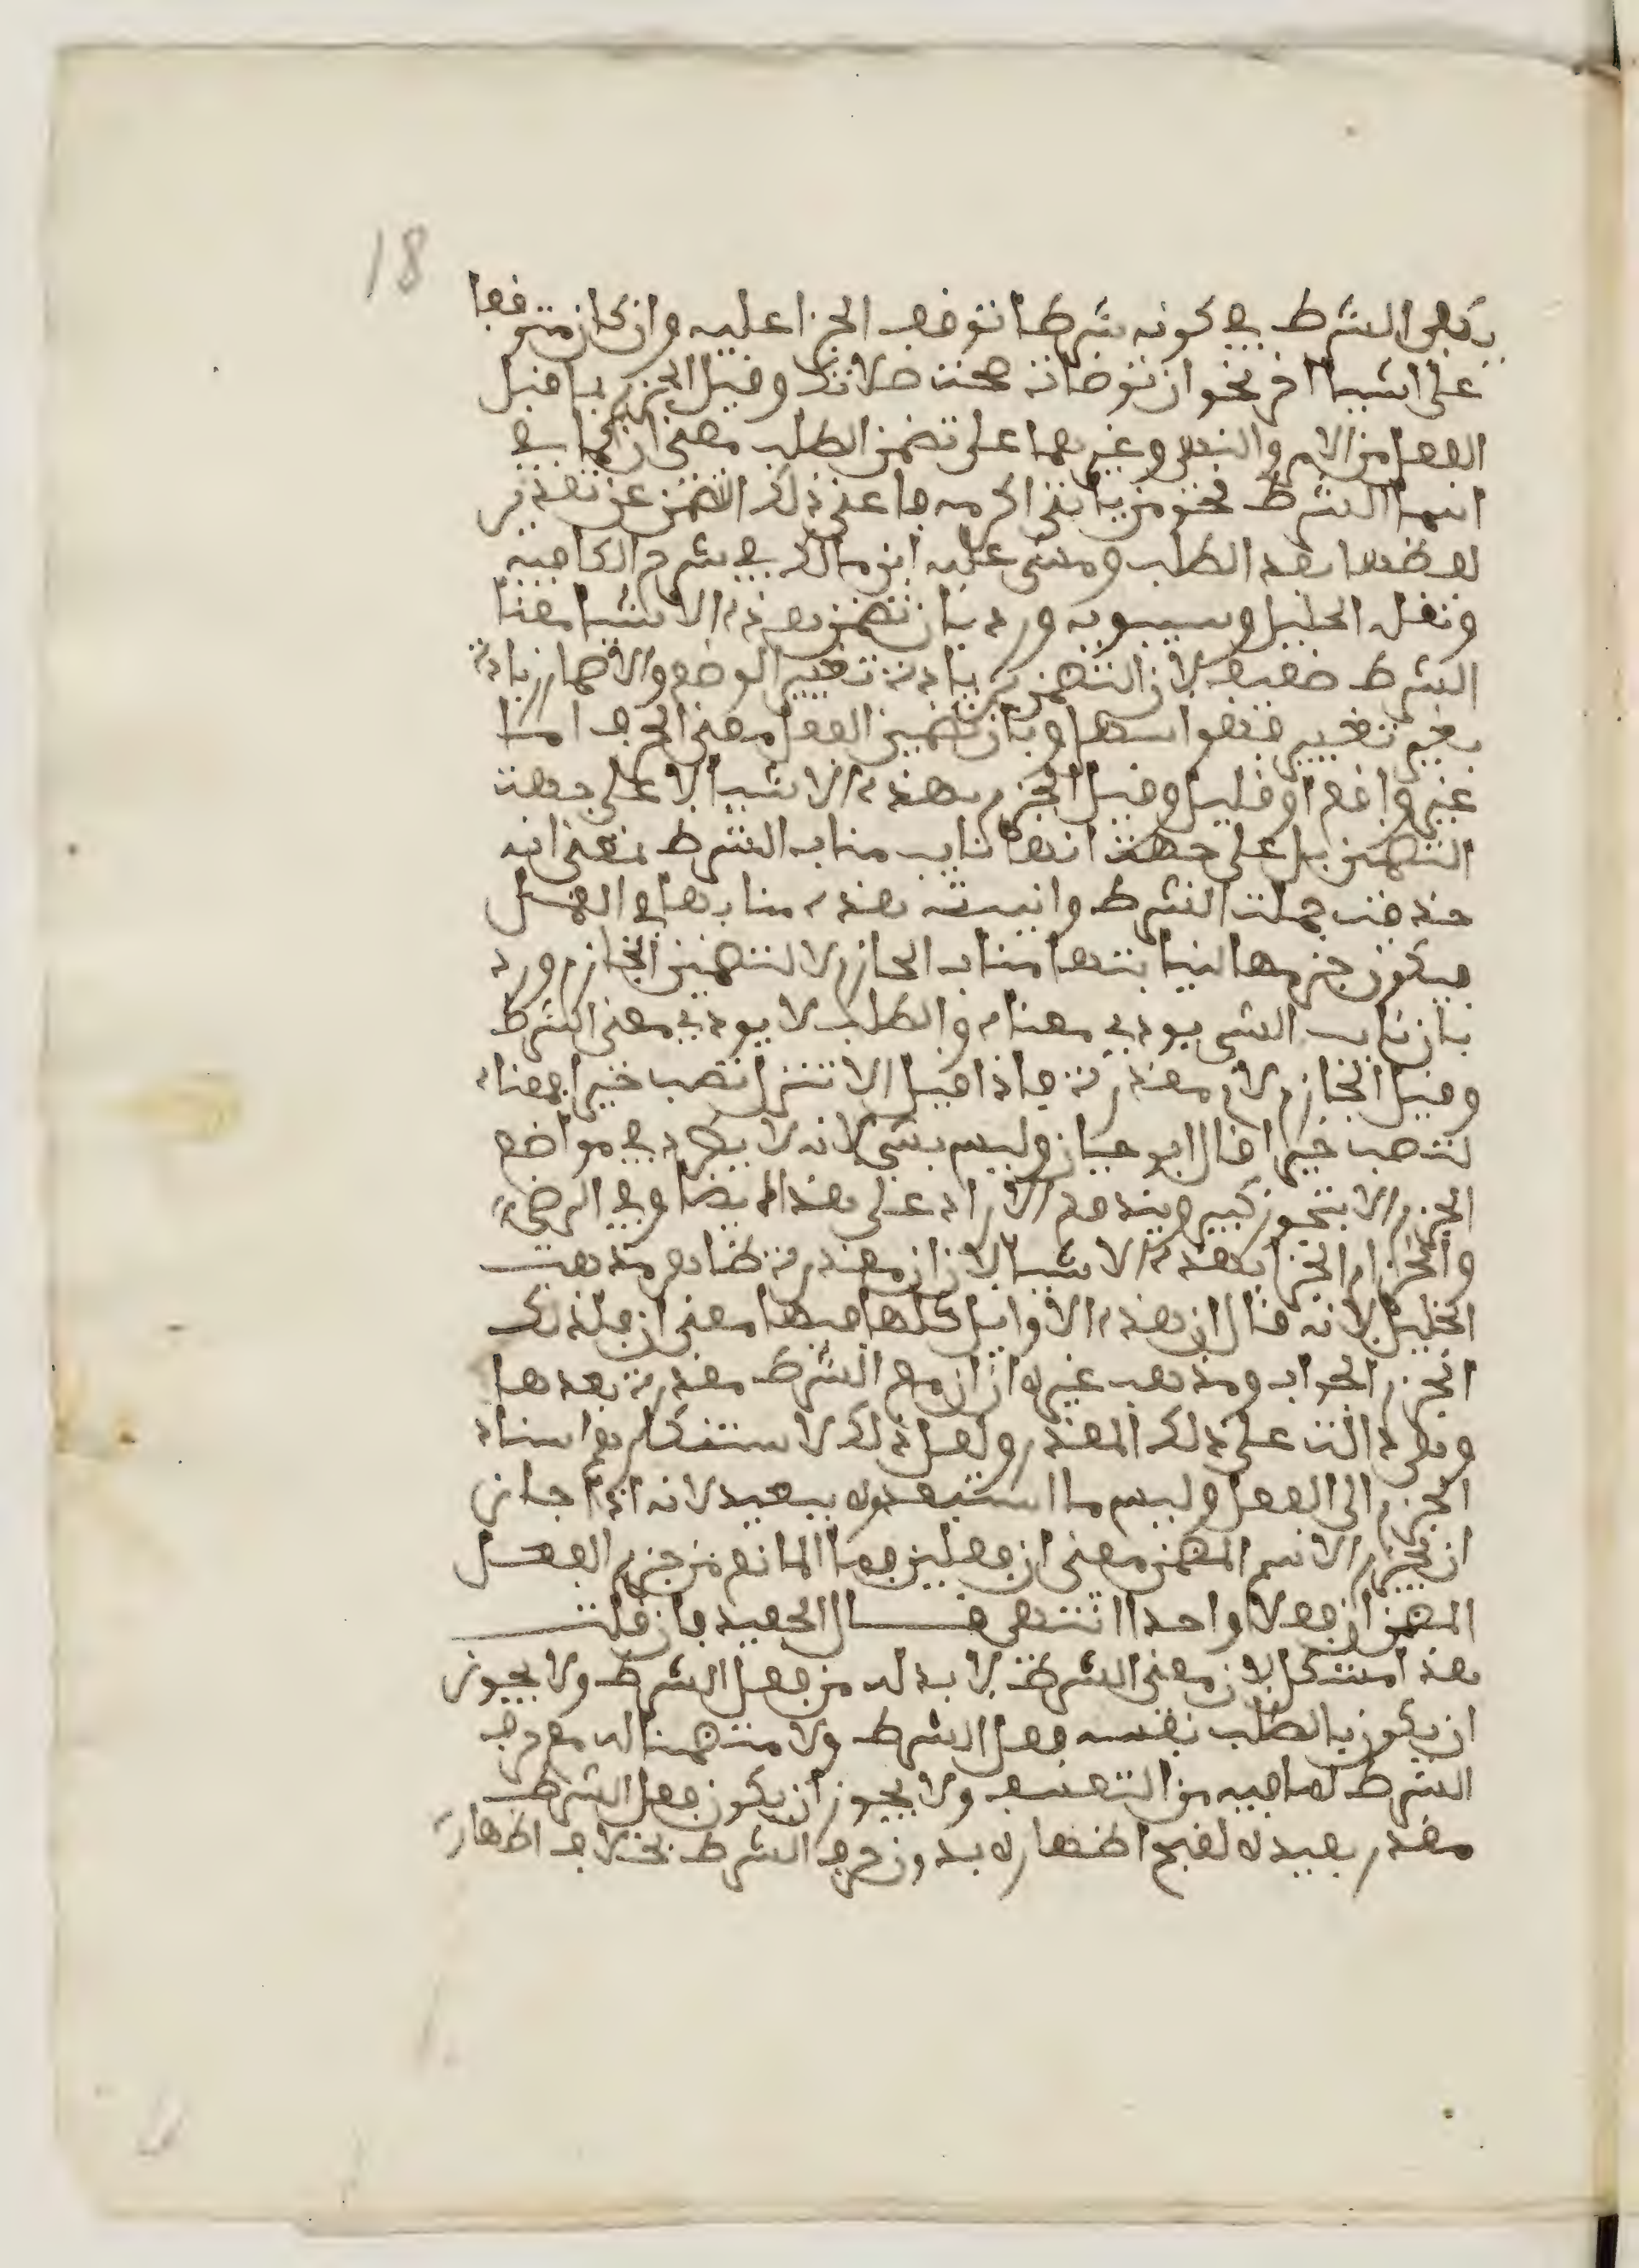 18
يكفي الشرط في كونه شرطا توقف الجزا عليه وان كان متوقفا
على اشيا اخر نحو ان توضات صحت صلاتك وقيل الجزم بما قبل
الفعل من الامر والنهي وغيرهما على تضمن الطلب معنى ان كما في
اسما الشرط نحو من ياتني اكرمه فاغنى ذلك التضمن عن تقدير
لفظها بعد الطلب ومشى عليه ابن مالك في شرح الكافية
ونقل الخليل وسيبويه ورد بان تضمن هذه الاشيا معنا
الشرط ضعيف لان التضمن زيادة تغيير الوضع والاضمار زيادة
بغير تغيير فهو اسهل وبان تضمين الفعل معنى الحرف اما
غير واقع او قليل وقيل الجزم بهذه الاشيا لا على جهة
التضمن بل على جهة انها نابت مناب الشرط بمعنى انه
حذفت جملة الشرط وانيبت هذه منابها في العمل
فيكون جزمها لنيابتها مناب الجازم لا لتضمن الجازم ورد
بان نايب الشي يودي معناه والطلب لا يودي معنى الشرط
وقيل الجازم لام مقدرة فاذا قيل الا تنزل تصب خيرا فمعناه
لتصب خيرا قال ابو حيان وليس بشي لانه لا يطرد في مواضع
الجزم الا بتجوز كبير ويندفع الايراد على هذا ايضا وفي الرضي
وانجزام الجزا بهذه الاشيا لا بان مقدرة ظاهر مذهب
الخليل لانه قال ان هذه الاوايل كلها فيها معنى ان فلذلك
انجزم الجواب ومذهب غيره ان ان مع الشرط مقدرة بعدها
وهي دالة على ذلك المقدر ولعل ذلك لاستنكارهم اسناد
الجزم الى الفعل وليس ما استبعدوه ببعيد لانه اذا جاز
ان يجزم الاسم المتضمن معنى ان فعلين فما المانع من جزم الفعل
المتضمن ان فعلا واحدا انتهى قال الحفيد فان قلت
هذا مشكل لان معنى الشرط لا بد له من فعل الشرط ولا يجوز
ان يكون بالطلب نفسه فعل الشرط ولا متضمنا له مع حرف
الشرط لما فيه من التعسف ولا يجوز ان يكون فعل الشرط
مقدر بعيده لقبح اظهاره بدون حرف الشرط بخلاف اظهاره